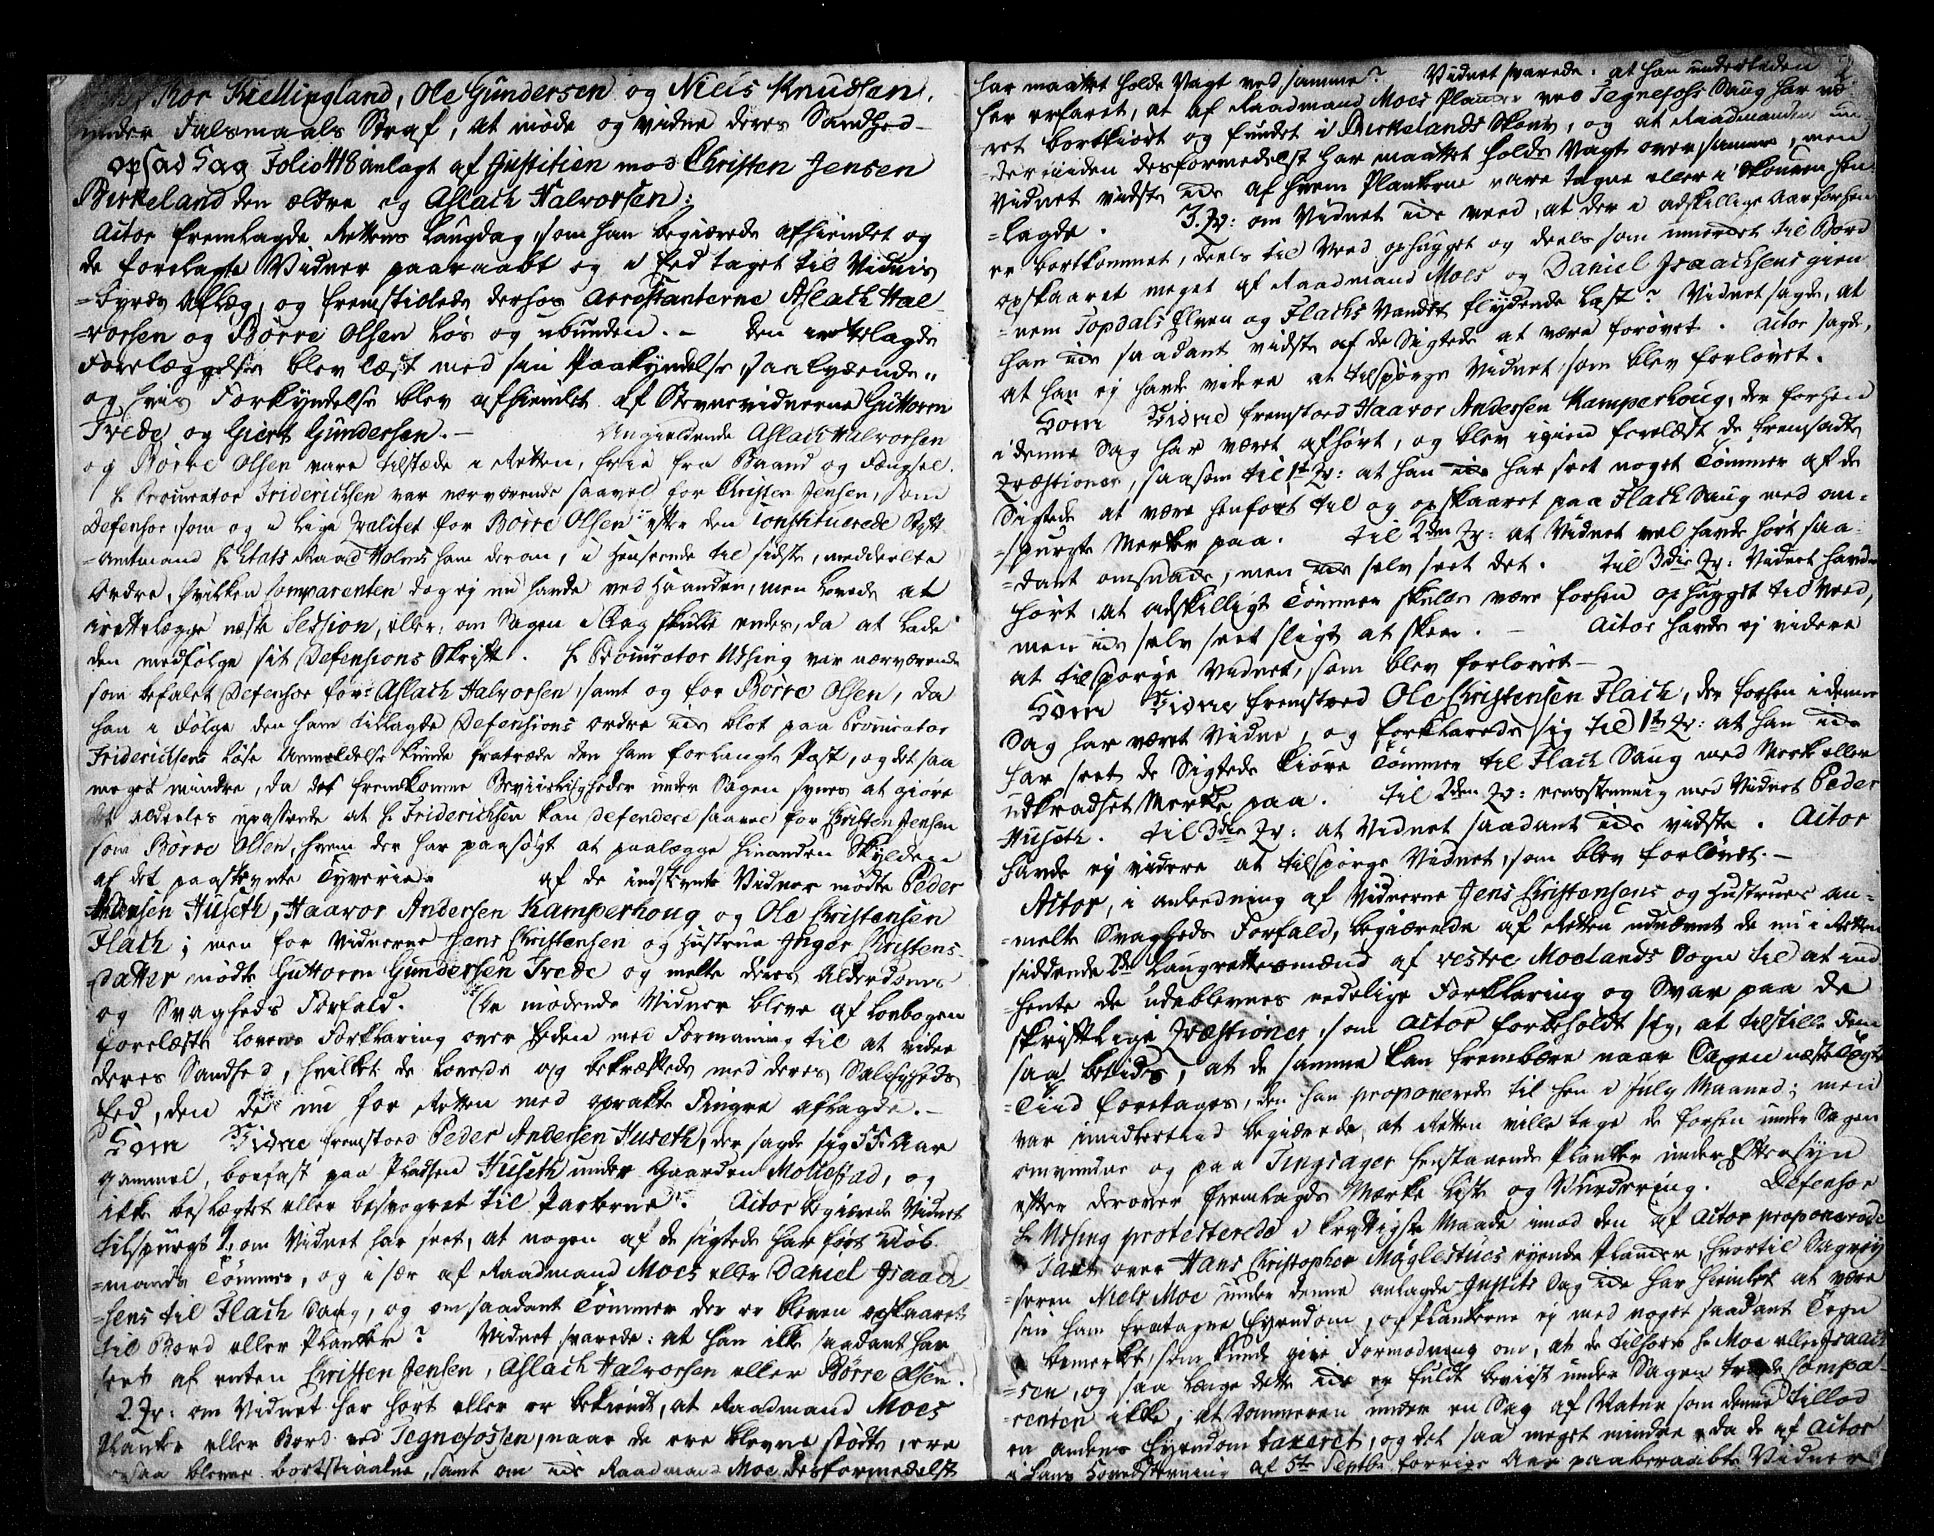 Thor Kiellingland, Ole Gundersen og Niels Knudsen,
under Falsmaals Straf, at møde og vidne deres Sandhed
opsad Sag Folio 448 anlagt af Justitien mod Christen Jensen
Birkeland den ældre og Aslach Halvorsen;
Actor fremlagde Rettens Laugdag, som han begiærede afhiemlet og
de forelagte Vidner paaraabt og i Eed taget til Vidnis
=byrds Aflæg, og fremstillede derhos Arrestanterne Aslach Hal
=vorsen og Børre Olsen løs og ubunden. - den irettelagde
Forelæggelse blev læst med sin Paakyndelse saalydende,,
og hvis Forkyndelse blev afhiemlet af Stevnevidnerne Guttorm
Trede og Giert Gundersen. - Angieldende Aslach Halvorsen
og Børre Olsen vare tilstæde i Retten, frie fra Baand og Fængsel.
Hr Procurator Friderichsen var nærværende saavel for Christen Jensen, som
Defensor, som og i lige Qvalitet for Børre Olsen efter den Constituerede Stift
=Amtmand Hr Etats Raad Holms ham derom, i Henseende til sidste, meddeelte
Ordre, hvilken Comparenten dog ej nu havde ved Haanden, men lovede at
irettelægge næste Session, eller, om Sagen i Dag skulle endes, da at lade
den medfølge sit Defensions Skrift. Hr Procurator Ussing var nærværende
som befalet Defensor for Aslach Halvorsen, samt og for Børre Olsen, da
han i Følge den ham tillagde Defensions ordre icke blot paa Procurator
Friderichsens løse Anmeldelse kunde fratræde den ham forlangte Post, og det saa
meget mindre, da det fremkomne Beviisligheder under Sagen synes at giøre
det aldeeles upassende at Hr Friderichsen kan defendere saavel for Christen Jensen
som Børre Olsen, hvem der har paasøgt at paalægge hinanden Skylden
af det paastevnte Tyverie. af de indstevnte Vidner mødte Peder
Andersen Huseth, Haavor Andersen Kamperhoug og Ole Christensen
Flach; men for Vidnerne Jens Christensen og Hustrue Inger Christens
=datter mødte Guttorm Gundersen Trede og meldte deres Alderdoms
og Svagheds Forfald. De mødende Vidner bleve af Lovbogen
forelæste Lovens Forklaring over Eeden med Formaning til at vidne
deres Sandhed, hvilket de lovede og bekræftede med deres Saligheds
Eed, den de nu for Retten med oprakte Fingre aflagde. -
Som Vidne fremstod Peder Andersen Huseth, der sagde sig 55 Aar
gammel, boefast paa Pladsen Huseth under Gaarden Mollestad, og
ikke beslægtet eller besvogret til Parterne. Actor begiærede Vidnet
tilspurgt 1., om Vidnet har seet, at nogen af de sigtede har ført
=mands Tømmer, og i sær af Raadmand Moes eller Daniel Isaach
=sens til Flach Saug, og om saadant Tømmer der er bleven opskaaret
til Bord eller Planker? Vidnet svarede: at han ikke saadant har
seet af enten Christen Jensen, Aslach Halvorsen eller Børre Olsen.
2 Qv: om Vidnet har hørt eller er bekiendt, at Raadmand Moes
Planker eller Bord ved Tegnefossen, naar de ere blevne stødte, ere
ogsaa blevne bortstiaalne, samt om icke Raadmand Moe desformedelst
2.
har maattet holde Vagt ved samme? Vidnet svarede: at han understeden
har erfaret, at af Raadmand Moes Planker ved Tegnefoss Saug har væ
ret bortkiørt og fundet i Birkelands Skov, og at Raadmanden un=
dertiiden desformedelst har maattet holde Vagt over samme, men
Vidnet vidste icke af hvem Plankerne vare tagne eller i Skouen hen=
=lagde. 3. Qv: om Vidnet icke veed, at der i adskillige Aar forhen
er bortkommet, deels til Ved ophugget og deels som til Bord
opskaaret meget af Raadmand Moes og Daniel Isaachsens gien
=nem Topdals Elven og Flachs Vandet flydende Last? Vidnet sagde, at
han icke saadant vidste af de Sigtede at være forøvet. Actor sagde,
at han ej havde videre at tilspørge Vidnet, som blev forlovet.
Som Vidne fremstoed Haavor Andersen Kamperhoug, der forhen
i denne Sag har været afhørt, og blev igien forelæst de fremsadte
Qvæstioner, saasom til 1ste Qv: at han icke har seet noget Tømmer af de
Sigtede at være henført til og opskaaret paa Flach Saug med om=
=spurgte Merker paa. til 2den Qv: at Vidnet vel havde hørt saa
=dant omsnacke, men icke selv seet det. til 3die Qv: Vidnet havde
hørt, at adskilligt Tømmer skulle være forhen ophugget til Ved,
men icke selv seet sligt at skee. - Actor havde ej videre
at tilspørge Vidnet, som blev forlovet -
Som Vidne fremstoed Ole Christensen Flach, der forhen i denne
Sag har været Vidne, og forklarede sig til 1ste Qv: at han icke
har seet de Sigtede kiøre Tømmer til Flach Saug med Merke eller
udkradset Merke paa. til 2den Qv: eensstemmig med Vidnet Peder
Huseth. til 3die Qv: at Vidnet saadant icke vidste. Actor
havde ej videre at tilspørge Vidnet, som blev forlovet. -
Actor, i anledning af Vidnerne Jens Christensens og Hustrues an=
=melte Svagheds Forfald, begiærede af Retten udnævnt de nu i Retten
siddende 2de Laugrettesmænd af vestre Moelands Sogn til at ind
hente de udeblevnes eedelige Forklaring og Svar paa de
skriftlige Qvæstioner, som Actor forbeholdt sig, at tilstille dem
saa betids, at de samme kan frembære naar Sagen næste Tægte
=Tiid foretages, den han proponerede til hen i July Maaned; men
var imidlertiid begiærede, at Retten ville tage de forhen under Sagen
omvundne og paa Tingsager henstaaende Planker under Eftersyn
efter derover fremlagde Mærke Liste og Vurdering. Defensor
Hr Ussing protesterede i kraftigste Maade imod den af Actor proponerede
Taxt over Hans Christopher Møglestues eyende Planker, hvortil Sagvey
seren Niels Moe under denne anlagde Justits Sag icke har hiemlet at være
sin ham fratagne Eyendom, og Plankerne ej med noget saadant Tegn
bemerket, som kunde give Formodning om, at de tilhøre Hr Moe eller Isaach
=sen, og saa længe dette icke er fuldt beviist under Sagen troede Compa
=renten ikke, at Dommeren under en Sag af Natur som denne tillod
en andens Eyendom taxeret, og det saa meget mindre, da de af Actor
i hans Contrastevning af 5te Septbr forrige Aar paaberaabte Vidner